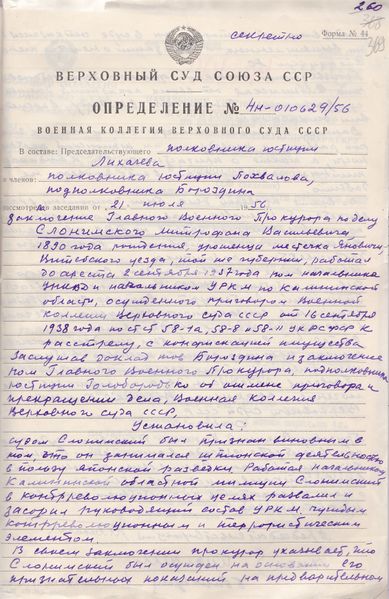 260
секретно
Форма № 44
ВЕРХОВНЫЙ СУД СОЮЗА ССР
ОПРЕДЕЛЕНИЕ № 4н-010629/56
ВОЕННАЯ КОЛЛЕГИЯ ВЕРХОВНОГО СУДА СССР
В составе: Председательствующего полковника юстиции
Лихачева
и членов: полковника юстиции Похвалова,
подполковника Бороздина
рассмотрела в заседании от 21 июля 1956
заключение Главного Военного Прокурора по делу
Слонимского Митрофана Васильевича
1890 года рождения, уроженца местечка Яновичи,
Витебского уезда, той же губернии, работал
до ареста 2 сентября 1937 года пом начальника
УНКВД и начальником УРКМ по Калининской
области, осужденного приговором Военной
коллегии Верховного суда СССР от 16 сентября
1938 года по ст ст 58-1а, 58-8 и 58-11 УК РСФСР к
расстрелу, с конфискацией имущества
Заслушав доклад тов Бороздина и заключение
пом Главного Военного Прокурора, подполковника
юстиции Голобородько об отмене приговора и
прекращении дела, Военная коллегия
Верховного суда СССР,
Установила:
судом Слонимский был признан виновным в
том, что он занимался шпионской деятельностью
в пользу японской разведки. Работая начальником
Калининской областной милиции Слонимский
в контрреволюционных целях развалил и
засорил руководящий состав УРКМ чуждым
контрреволюционным и террористическим
элементом.
В своем заключении прокурор указывает, что
Слонимский был осужден на основании его
признательных показаний на предварительном